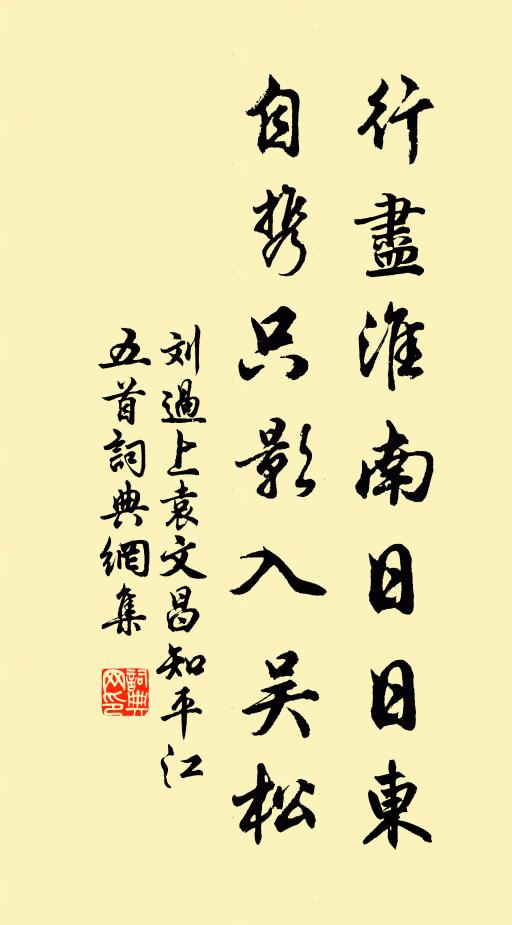 行盡淮南日日東
自携只影入吴松
刘過上袁文昌知平江
五首詞典網集
詞典
网印